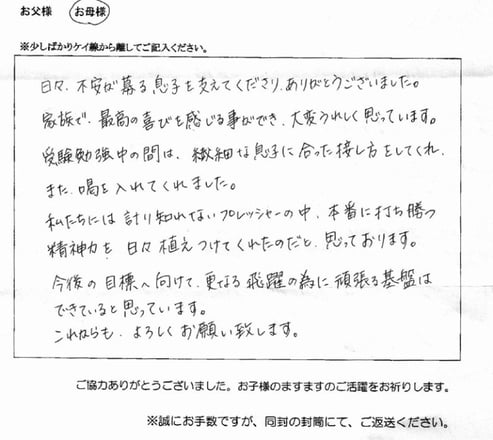 お父様 お母様
※少しばかりケイ線から離してご記入ください。
日々、不安が募る息子を支えてくださり、ありがとうございました。
家族で、最高の喜びを感じる事ができ、大変うれしく思っています。
受験勉強中の間は、繊細な息子に合った接し方をしてくれ、
また、喝を入れてくれました。
私たちには計り知れないプレッシャーの中、本番に打ち勝つ
精神力を日々植えつけてくれたのだと、思っております。
今後の目標へ向けて、更なる飛躍の為に頑張る基盤は
できていると思っています。
これからも、よろしくお願い致します。
ご協力ありがとうございました。お子様のますますのご活躍をお祈りします。
※誠にお手数ですが、同封の封筒にて、ご返送ください。